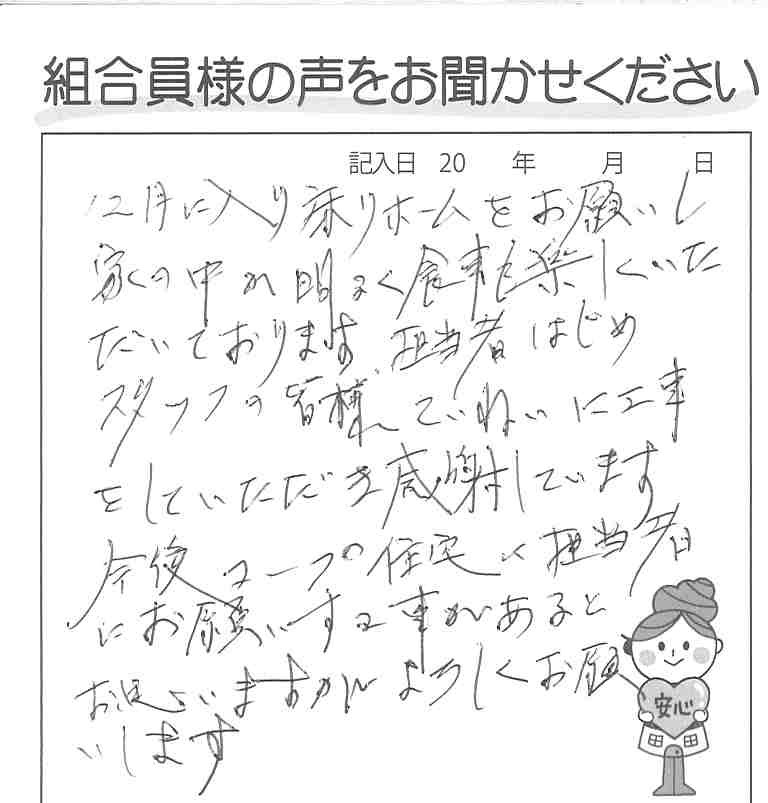 組合員様の声をお聞かせください
記入日 20 年 月 日
12月に入り リホームをお願いし
家の中が明るく食事も楽しくいた
だいております。担当者はじめ
スタッフの皆様 ていねいに工事
をしていただき感謝しています
今後コープ住宅 担当者
にお願いする事があると
お思いますが よろしくお願
いします
安心